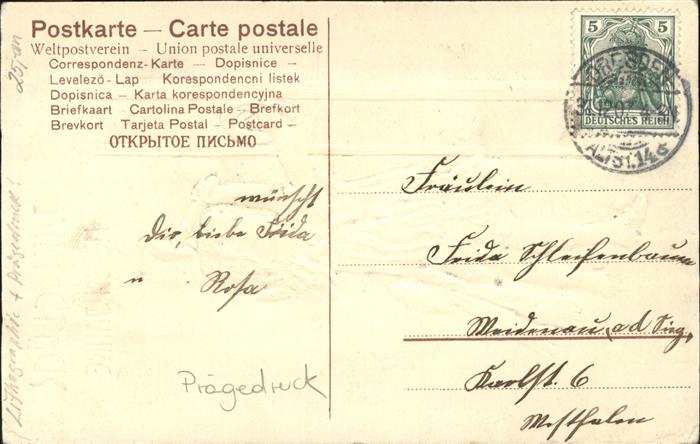 Postkarte — Carte postale
Weltpostverein – Union postale universelle
Correspondenz-Karte – Dopisnice –
Levelező-Lap Korespondencni listek
Dopisnica – Karta korespondencyjna
Briefkaart Cartolina Postale – Brefkort
Brevkort Tarjeta Postal – Postcard –
ОТКРЫТОЕ ПИСЬМО
5 5
DEUTSCHES REICH
DRESDEN
ALTST. 14
wünscht
Dir, liebe Frida
Rosa
Fräulein
Frida Schleifenbaum
Weidenau, a/d Sieg,
Karlst. 6
Westfalen
Prägedruck
Lithographie + Prägedruck!